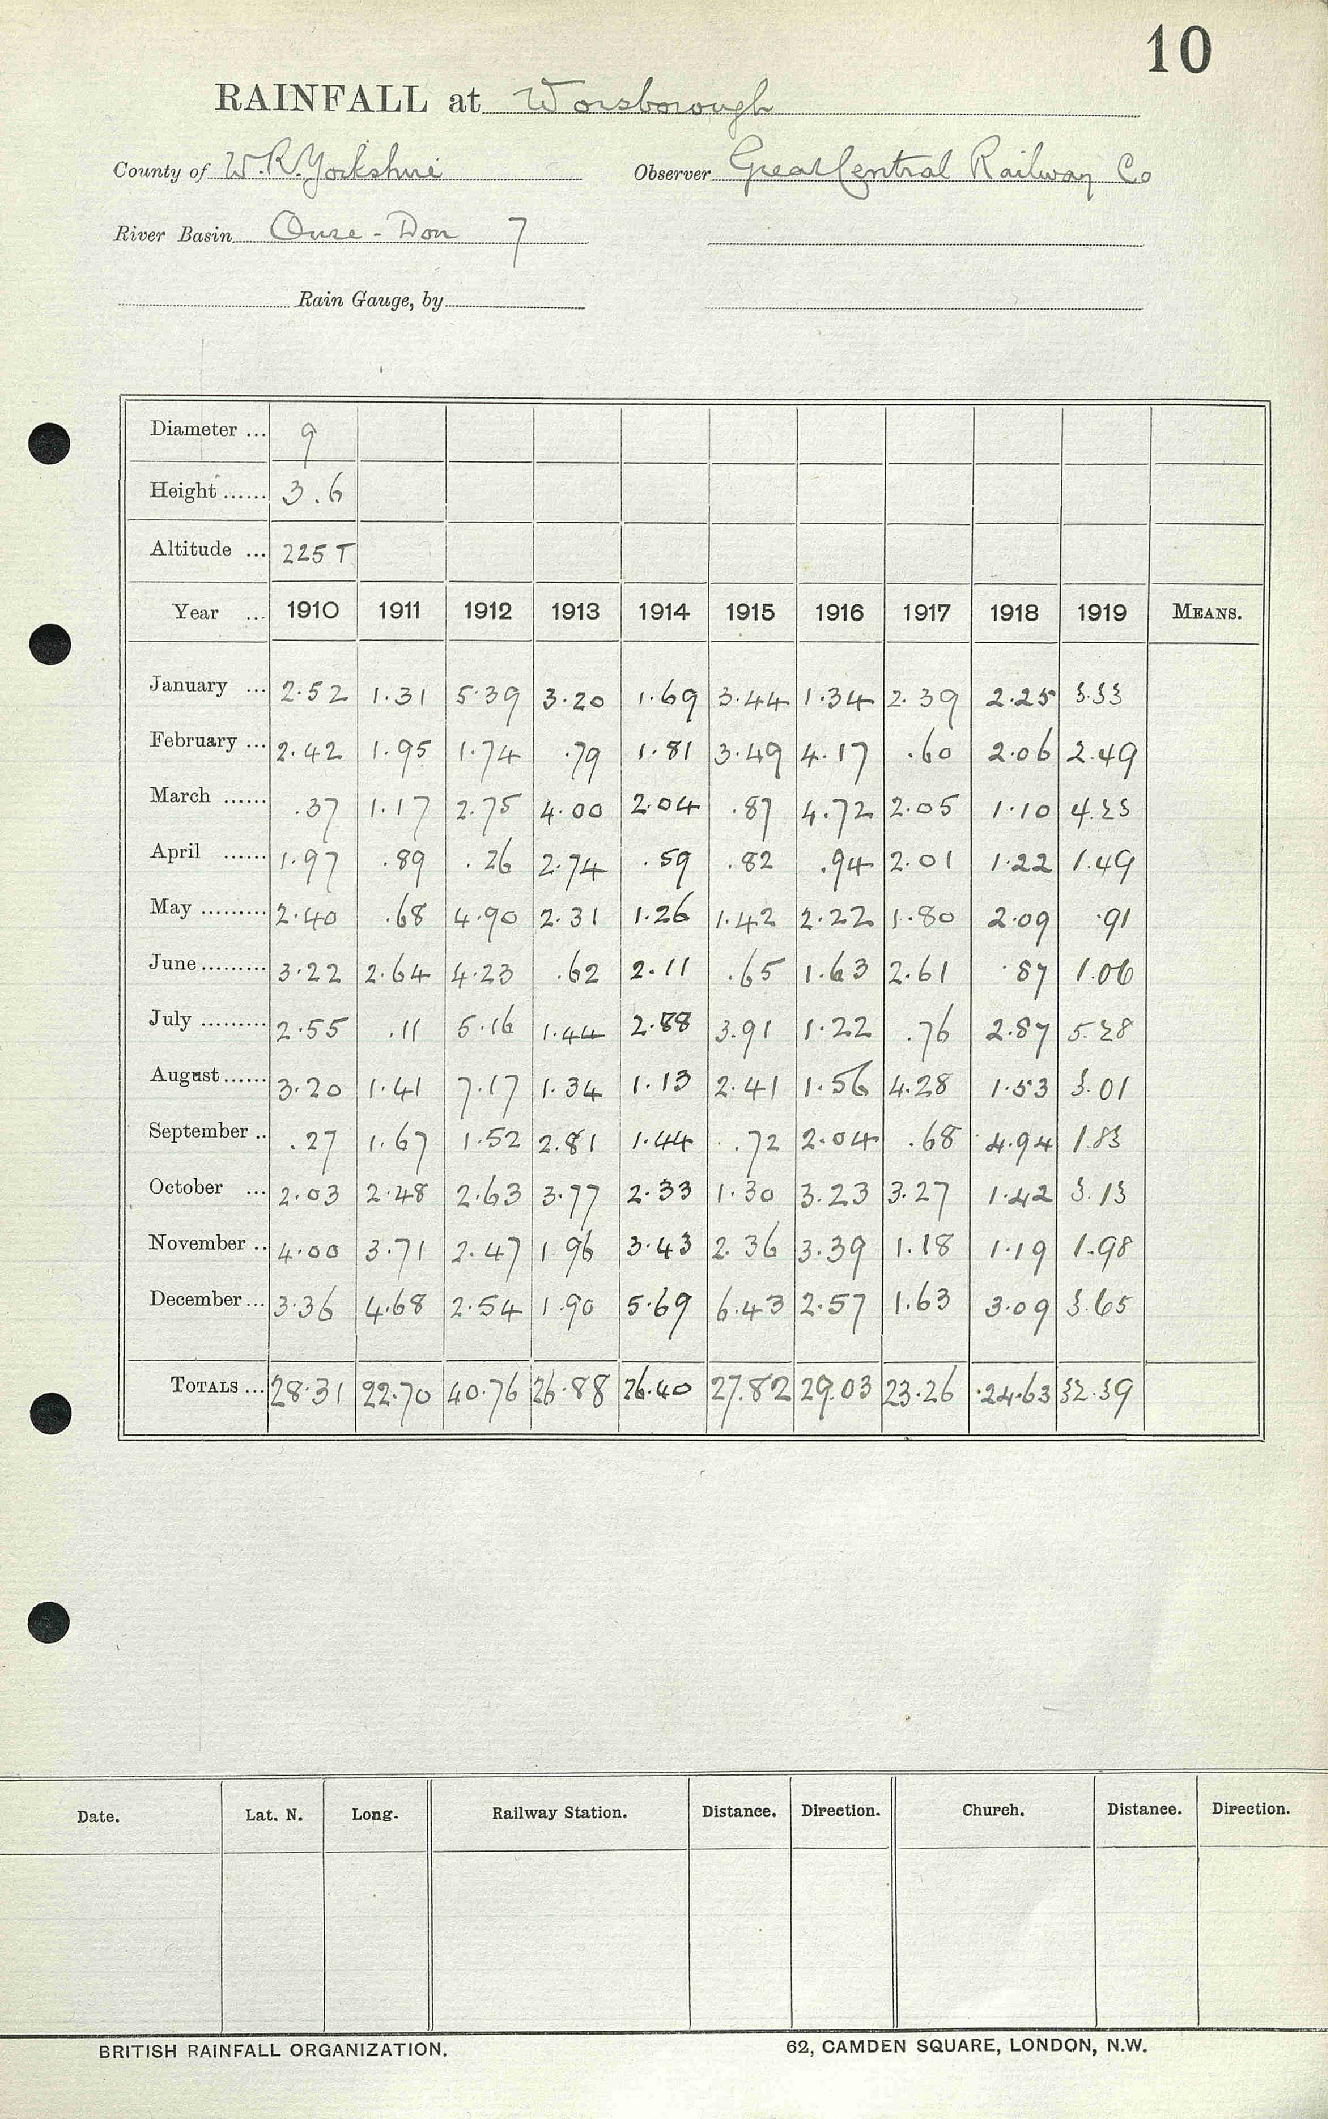 10
RAINFALL at Worsborough
County of W.R. Yorkshire Observer Great Central Railway Co
River Basin Ouse - Don 7
Rain Gauge, by
Diameter ... 9
Height ...... 3.6
Altitude ... 225 T
Year ... 1910 1911 1912 1913 1914 1915 1916 1917 1918 1919 MEANS.
January ... 2.52 1.31 5.39 3.20 1.69 3.44 1.34 2.39 2.25 3.33
February ... 2.42 1.95 1.74 .79 1.81 3.49 4.17 .60 2.06 2.49
March ...... .37 1.17 2.75 4.00 2.04 .87 4.72 2.05 1.10 4.23
April ...... 1.97 .89 .26 2.74 .59 .82 .94 2.01 1.22 1.49
May ......... 2.40 .68 4.90 2.31 1.26 1.42 2.22 1.80 2.09 .91
June ......... 3.22 2.64 4.23 .62 2.11 .65 1.63 2.61 .87 1.06
July ......... 2.55 .11 5.16 1.44 2.88 3.91 1.22 .76 2.87 5.28
August ...... 3.20 1.41 7.17 1.34 1.13 2.41 1.56 4.28 1.53 3.01
September .. .27 1.67 1.52 2.81 1.44 .72 2.04 .68 4.94 1.83
October ... 2.03 2.48 2.63 3.77 2.33 1.30 3.23 3.27 1.42 3.13
November .. 4.00 3.71 2.47 1.96 3.43 2.36 3.39 1.18 1.19 1.98
December ... 3.36 4.68 2.54 1.90 5.69 6.43 2.57 1.63 3.09 3.65
TOTALS ... 28.31 22.70 40.76 26.88 26.40 27.82 29.03 23.26 24.63 32.39
Date. Lat. N. Long. Railway Station. Distance. Direction. Church. Distance. Direction.
BRITISH RAINFALL ORGANIZATION. 62, CAMDEN SQUARE, LONDON, N.W.